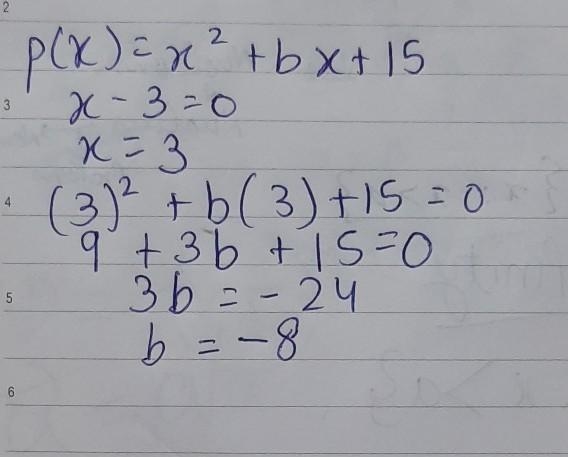 2
p(x) = x² + bx + 15
3
x - 3 = 0
x = 3
4
(3)² + b(3) + 15 = 0
9 + 3b + 15 = 0
5
3b = - 24
b = - 8
6